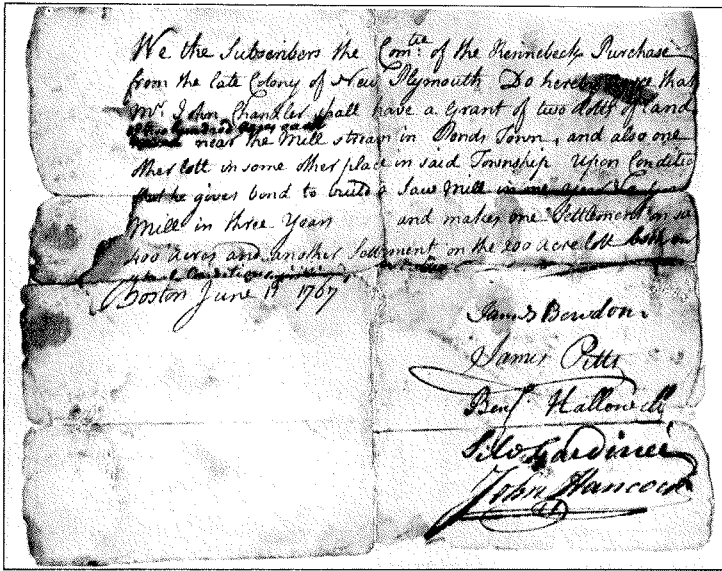 We the Subscribers the Com.tte of the Kennebeck Purchase
from the late Colony of New Plymouth Do hereby that
Mr. John Chandler shall have a Grant of two Lotts of Land
of two hundred acres each near the Mill stream in Ponds Town, and also one
other lott in some other place in said Township Upon Conditio
that he gives bond to build a Saw Mill in one year
Mill in three Years and makes one Settlement on sd
400 Acres and another Settlement on the 200 acre lott both on
Boston June 1767
James Bowdoin
James Pitts
Benj. Hallowell
Silv Gardiner
John Hancock